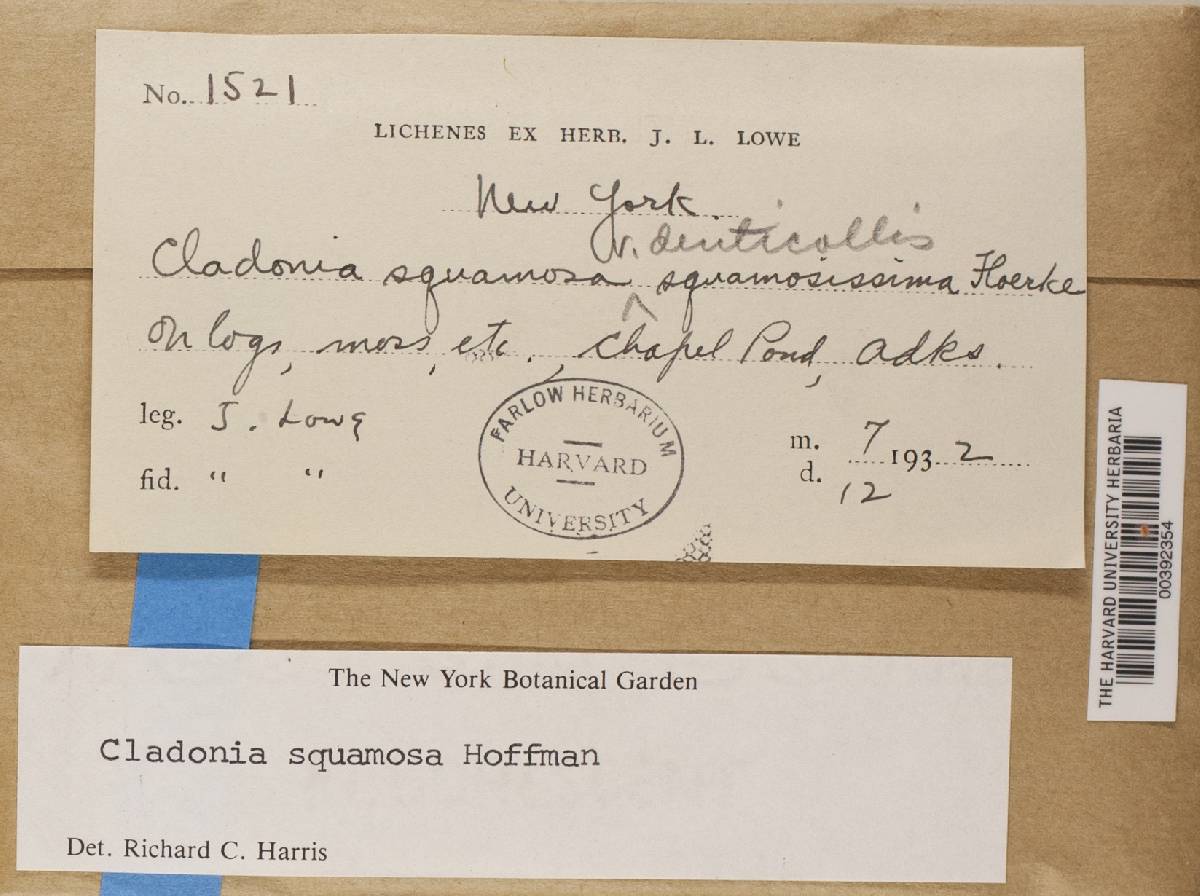 No. 1521
LICHENES EX HERB. J. L. LOWE
New York.
v. denticollis
Cladonia squamosa ^ squamosissima Floerke
On logs, moss, etc., Chapel Pond, Adks.
leg. J. Lowe
fid. " "
m. 7 193 2
d. 12
FARLOW HERBARIUM
HARVARD
UNIVERSITY
THE HARVARD UNIVERSITY HERBARIA
00392354
The New York Botanical Garden
Cladonia squamosa Hoffman
Det. Richard C. Harris